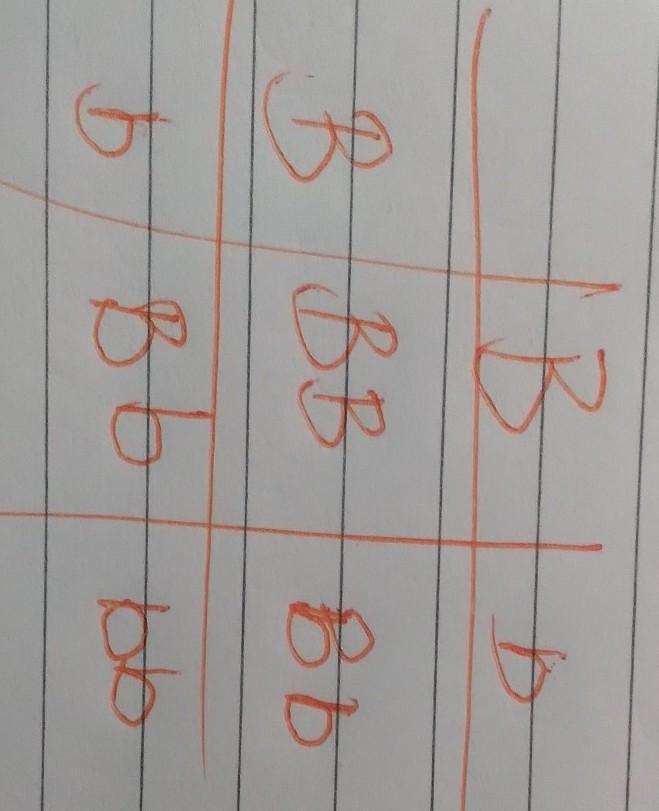 B b
B BB Bb
b Bb bb